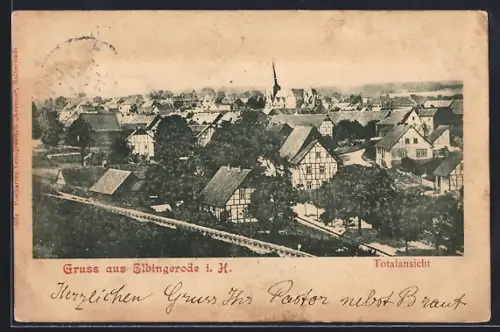 Gruss aus Elbingerode i. H.
Totalansicht
Herzlichen Gruss Ihr Pastor nebst Braut